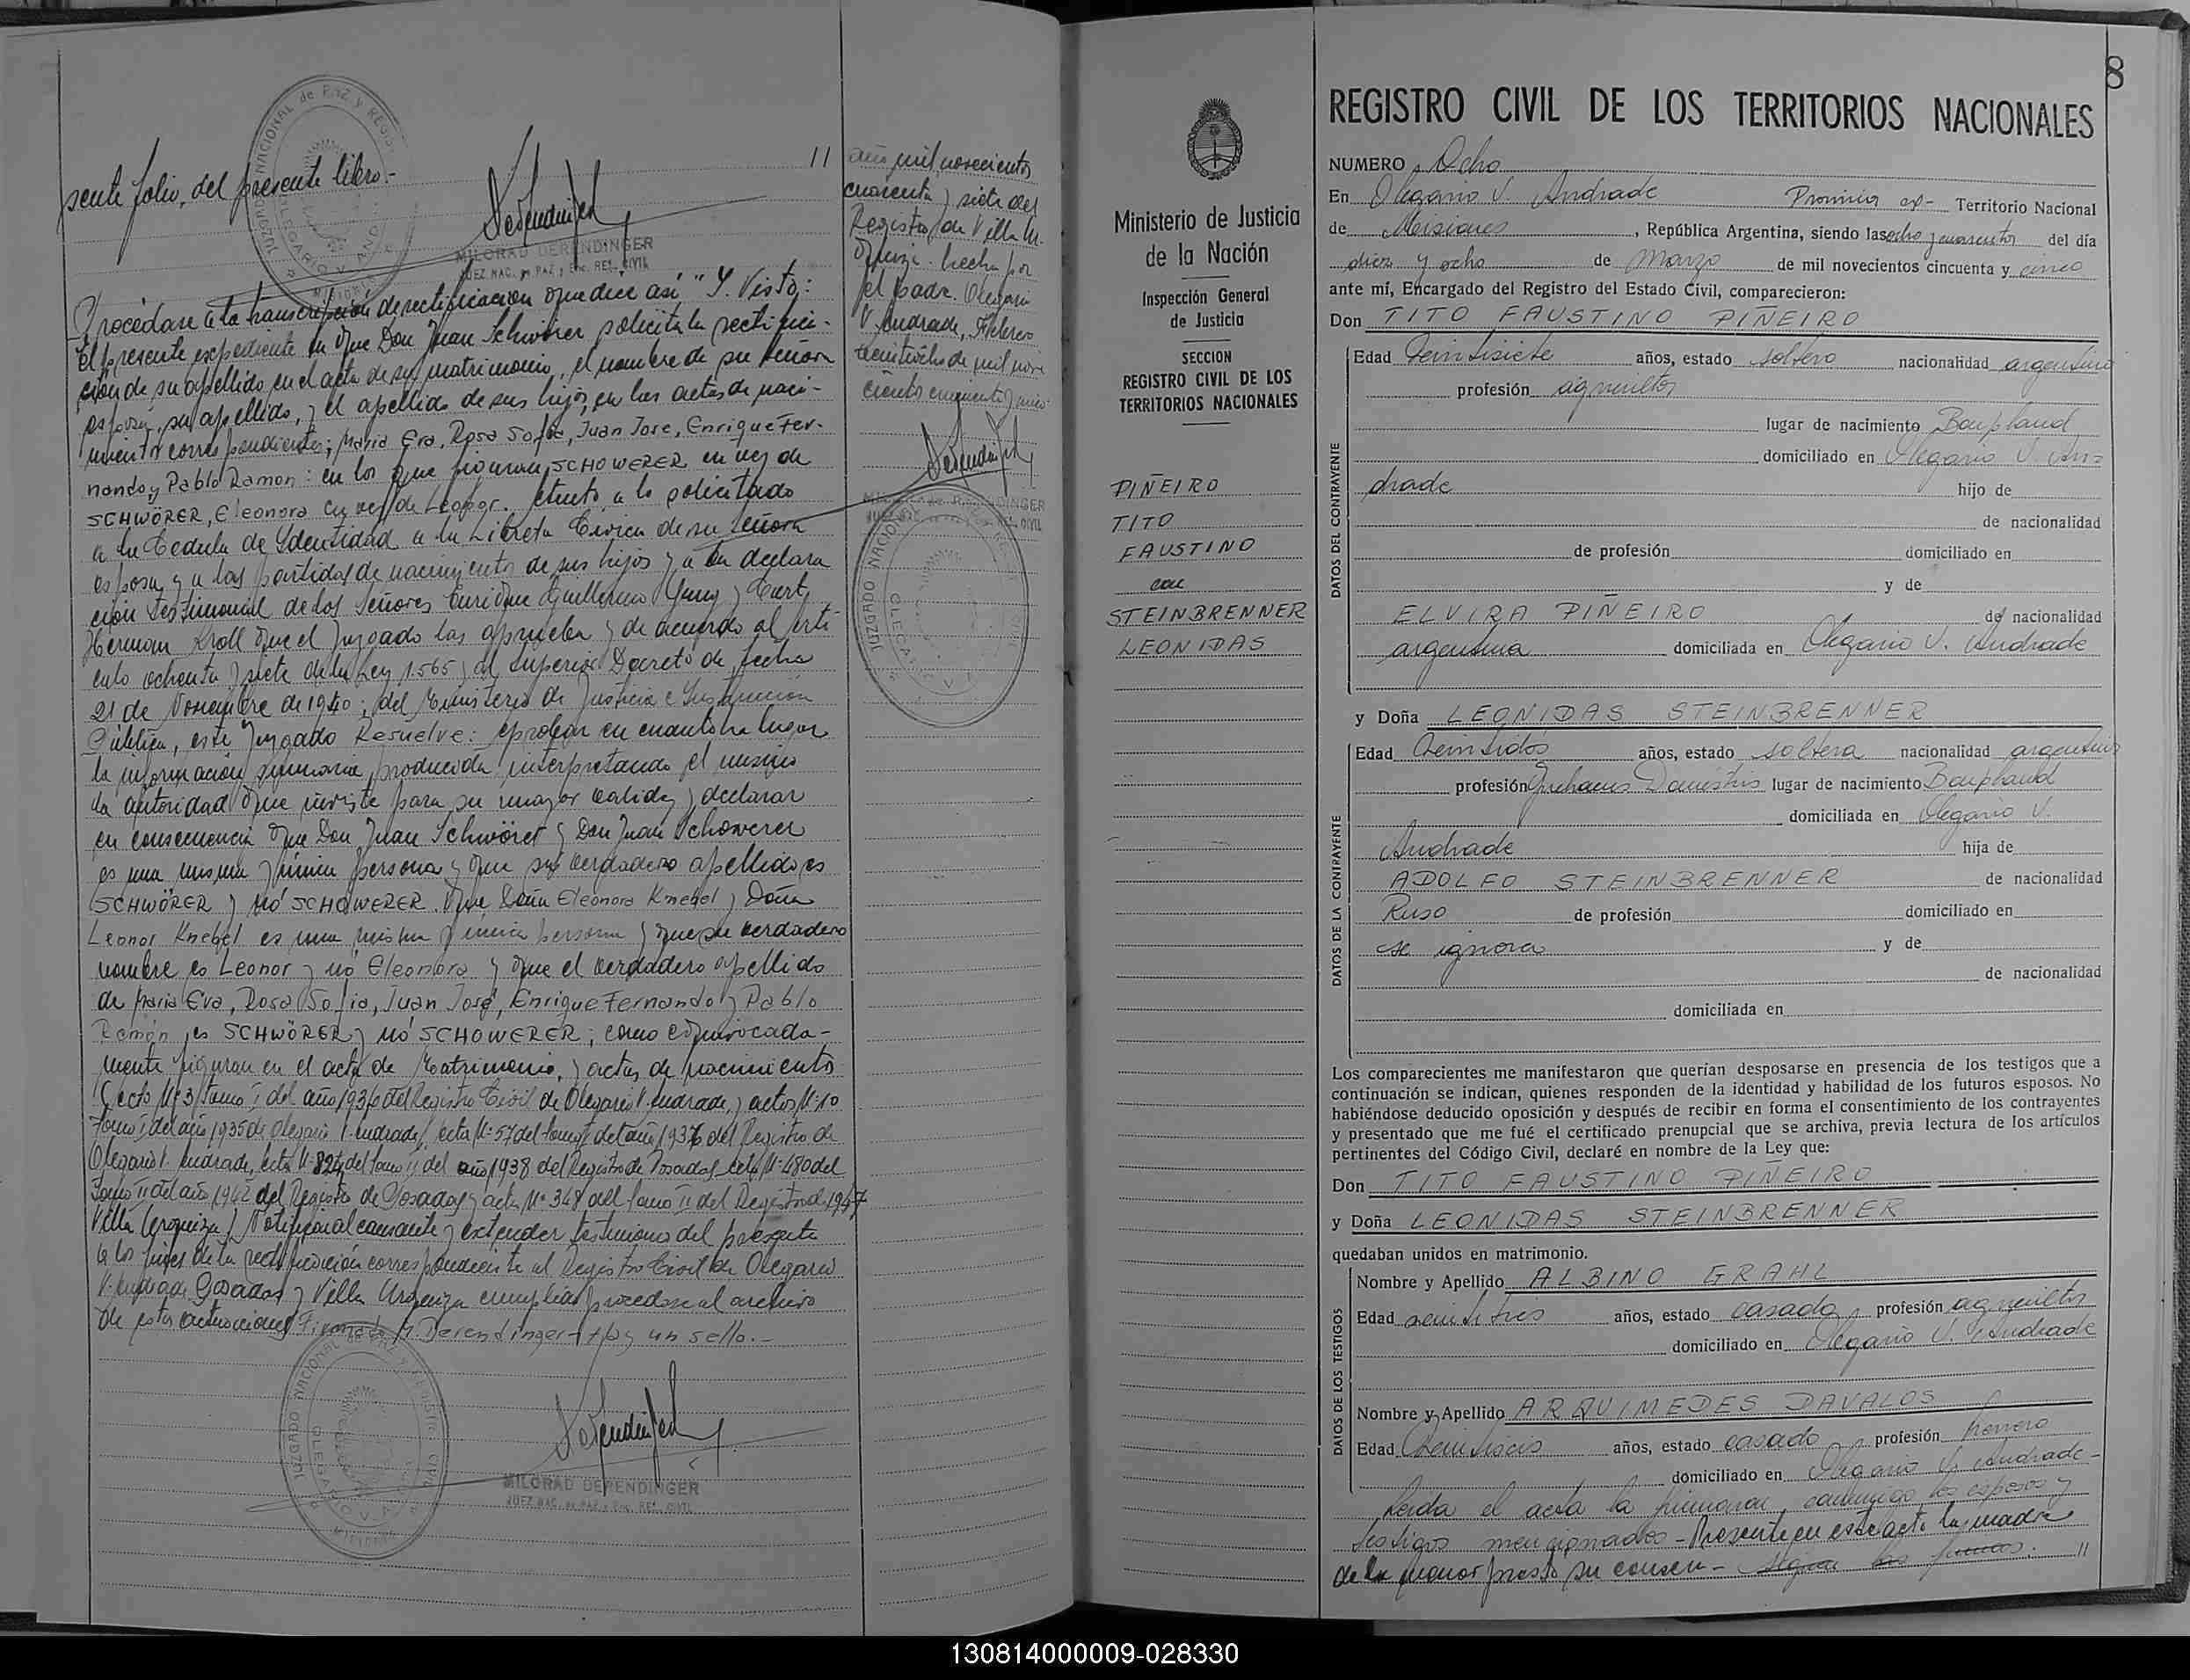 sente folio, del presente libro.-
MILORAD DERENDINGER
JUEZ NAC. de PAZ y Enc. REG. CIVIL
Procédase a la transcripción de rectificacion que dice así "Y. Visto:
El presente expediente en que Don Juan Schwörer solicita la rectifica-
ción de su apellido en el acta de su matrimonio, el nombre de su señora
esposa, su apellido, y el apellido de sus hijos, en las actas de naci-
miento correspondientes; Maria Eva, Rosa Sofia, Juan Jose, Enrique Fer-
nando y Pablo Ramon: en los que figuran SCHOWERER en vez de
SCHWÖRER, Eleonora en vez de Leonor. atento a lo solicitado
a la Cedula de Identidad a la Libreta Civica de su señora
esposa y a las partidas de nacimiento de sus hijos y a la declara
ción testimonial de los señores Enrique Guillermo Jung y Curt
Hermann Kroll que el Juzgado las aprueba y de acuerdo al arti-
culo ochenta y siete de la Ley 1.565 y al superior Decreto de fecha
21 de Noviembre de 1940; del Ministerio de Justicia e Instrucción
Pública, este Juzgado Resuelve: aprobar en cuanto ha lugar
la información sumaria producida, interponiendo el mismo
la autoridad que inviste para su mayor validez y declarar
en consecuencia que Don Juan Schwörer y Don Juan Schowerer
es una misma y única persona y que su verdadero apellido es
SCHWÖRER y nó SCHOWERER. Que Doña Eleonora Knebel y Doña
Leonor Knebel es una misma y única persona y que su verdadero
nombre es Leonor y nó Eleonora y que el verdadero apellido
de Maria Eva, Rosa Sofia, Juan José, Enrique Fernando y Pablo
Ramón, es SCHWÖRER y nó SCHOWERER; como equivocada-
mente figuran en el acta de Matrimonio, y actas de nacimiento
(acta Nº 3 tomo I del año 1936 del Registro Civil de Olegario V. Andrade, y actas Nº 10
tomo I del año 1935 de Olegario V. Andrade, acta Nº 57 del tomo I del año 1936 del Registro de
Olegario V. Andrade, acta Nº 824 del tomo II del año 1938 del Registro de Posadas, acta Nº 480 del
Tomo II del año 1942 del Registro de Posadas y acta Nº 348 del tomo II del Registro de 1947
Villa Urquiza). Notifíquese al causante y extender testimonio del presente
a los fines de la rectificación correspondiente al Registro Civil de Olegario
V. Andrade, Posadas y Villa Urquiza cumplido procédase al archivo
de estas actuaciones. Firmado M. Derendinger- Hay un sello.-
MILORAD DERENDINGER
JUEZ NAC. de PAZ y Enc. REG. CIVIL
año mil novecientos
cuarenta y siete del
Registro de Villa U-
rquiza. hecha por
el padre. Olegario
V. Andrade, Febrero
veintiocho de mil nove
cientos cincuenta y cinco.
MILORAD DERENDINGER
JUEZ NAC. de PAZ y Enc. REG. CIVIL
Ministerio de Justicia
de la Nación
Inspección General
de Justicia
SECCION
REGISTRO CIVIL DE LOS
TERRITORIOS NACIONALES
PIÑEIRO
TITO
FAUSTINO
con
STEINBRENNER
LEONIDAS
8
REGISTRO CIVIL DE LOS TERRITORIOS NACIONALES
NUMERO Ocho
En Olegario V. Andrade Provincia ex- Territorio Nacional
de Misiones, República Argentina, siendo las ocho y cuarenta del día
diez y ocho de Marzo de mil novecientos cincuenta y cinco
ante mí, Encargado del Registro del Estado Civil, comparecieron:
Don TITO FAUSTINO PIÑEIRO
DATOS DEL CONTRAYENTE
Edad Veintisiete años, estado soltero nacionalidad argentino
profesión agricultor
lugar de nacimiento Bonpland
domiciliado en Olegario V. An=
drade hijo de
de nacionalidad
de profesión domiciliado en
y de
ELVIRA PIÑEIRO de nacionalidad
argentina domiciliada en Olegario V. Andrade
y Doña LEONIDAS STEINBRENNER
DATOS DE LA CONTRAYENTE
Edad Veintidos años, estado soltera nacionalidad argentina
profesión Quehaceres Domésticos lugar de nacimiento Bonpland
domiciliada en Olegario V.
Andrade hija de
ADOLFO STEINBRENNER de nacionalidad
Ruso de profesión domiciliado en
se ignora y de
de nacionalidad
domiciliada en
Los comparecientes me manifestaron que querían desposarse en presencia de los testigos que a
continuación se indican, quienes responden de la identidad y habilidad de los futuros esposos. No
habiéndose deducido oposición y después de recibir en forma el consentimiento de los contrayentes
y presentado que me fué el certificado prenupcial que se archiva, previa lectura de los artículos
pertinentes del Código Civil, declaré en nombre de la Ley que:
Don TITO FAUSTINO PIÑEIRO
y Doña LEONIDAS STEINBRENNER
quedaban unidos en matrimonio.
DATOS DE LOS TESTIGOS
Nombre y Apellido ALBINO GRAHL
Edad veintitres años, estado casado, profesión agricultor
domiciliado en Olegario V. Andrade
Nombre y Apellido ARQUIMEDES DAVALOS
Edad Veintiseis años, estado casado profesión herrero
domiciliado en Olegario V. Andrade-
Leída el acta la firmaron conmigo los esposos y
testigos mencionados - Presente en este acto la madre
de la menor prestó su consen-
130814000009-028330